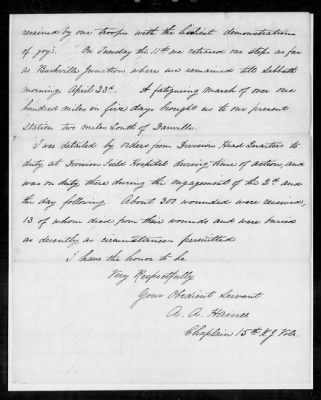 received by our troops with the wildest demonstrations
of joy. On Tuesday the 11th we retraced our steps as far
as Burkville Junction where we remained till Sabbath
morning April 23d. A fatiguing march of over one
hundred miles in five days brought us to our present
station two miles South of Danville.
I was detailed by orders from Division Head Quarters to
duty at Division Field Hospital during time of action, and
was on duty there during the engagement of the 2d and
the day following. About 300 wounded were received,
13 of whom died from their wounds and were buried
as decently as circumstances permitted
I have the honor to be
Very Respectfully
Your Obedient Servant
A. A. Haines
Chaplain 15th N.J. Vols.